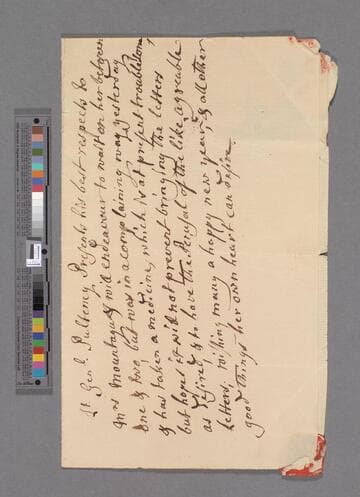 Lt Genl. Pulteney Presents his best respects to
Mrs Mountague & will endeavour to wait on her between
one & two, but was in a complaining way yesterday
& has taken a medicine, which is at present troublesom,
but hopes it will not prevent bringing the letters
as desired & to have the Perusal of the like agreable
letters, wishing many a happy new year, & all other
good things her own heart can desire